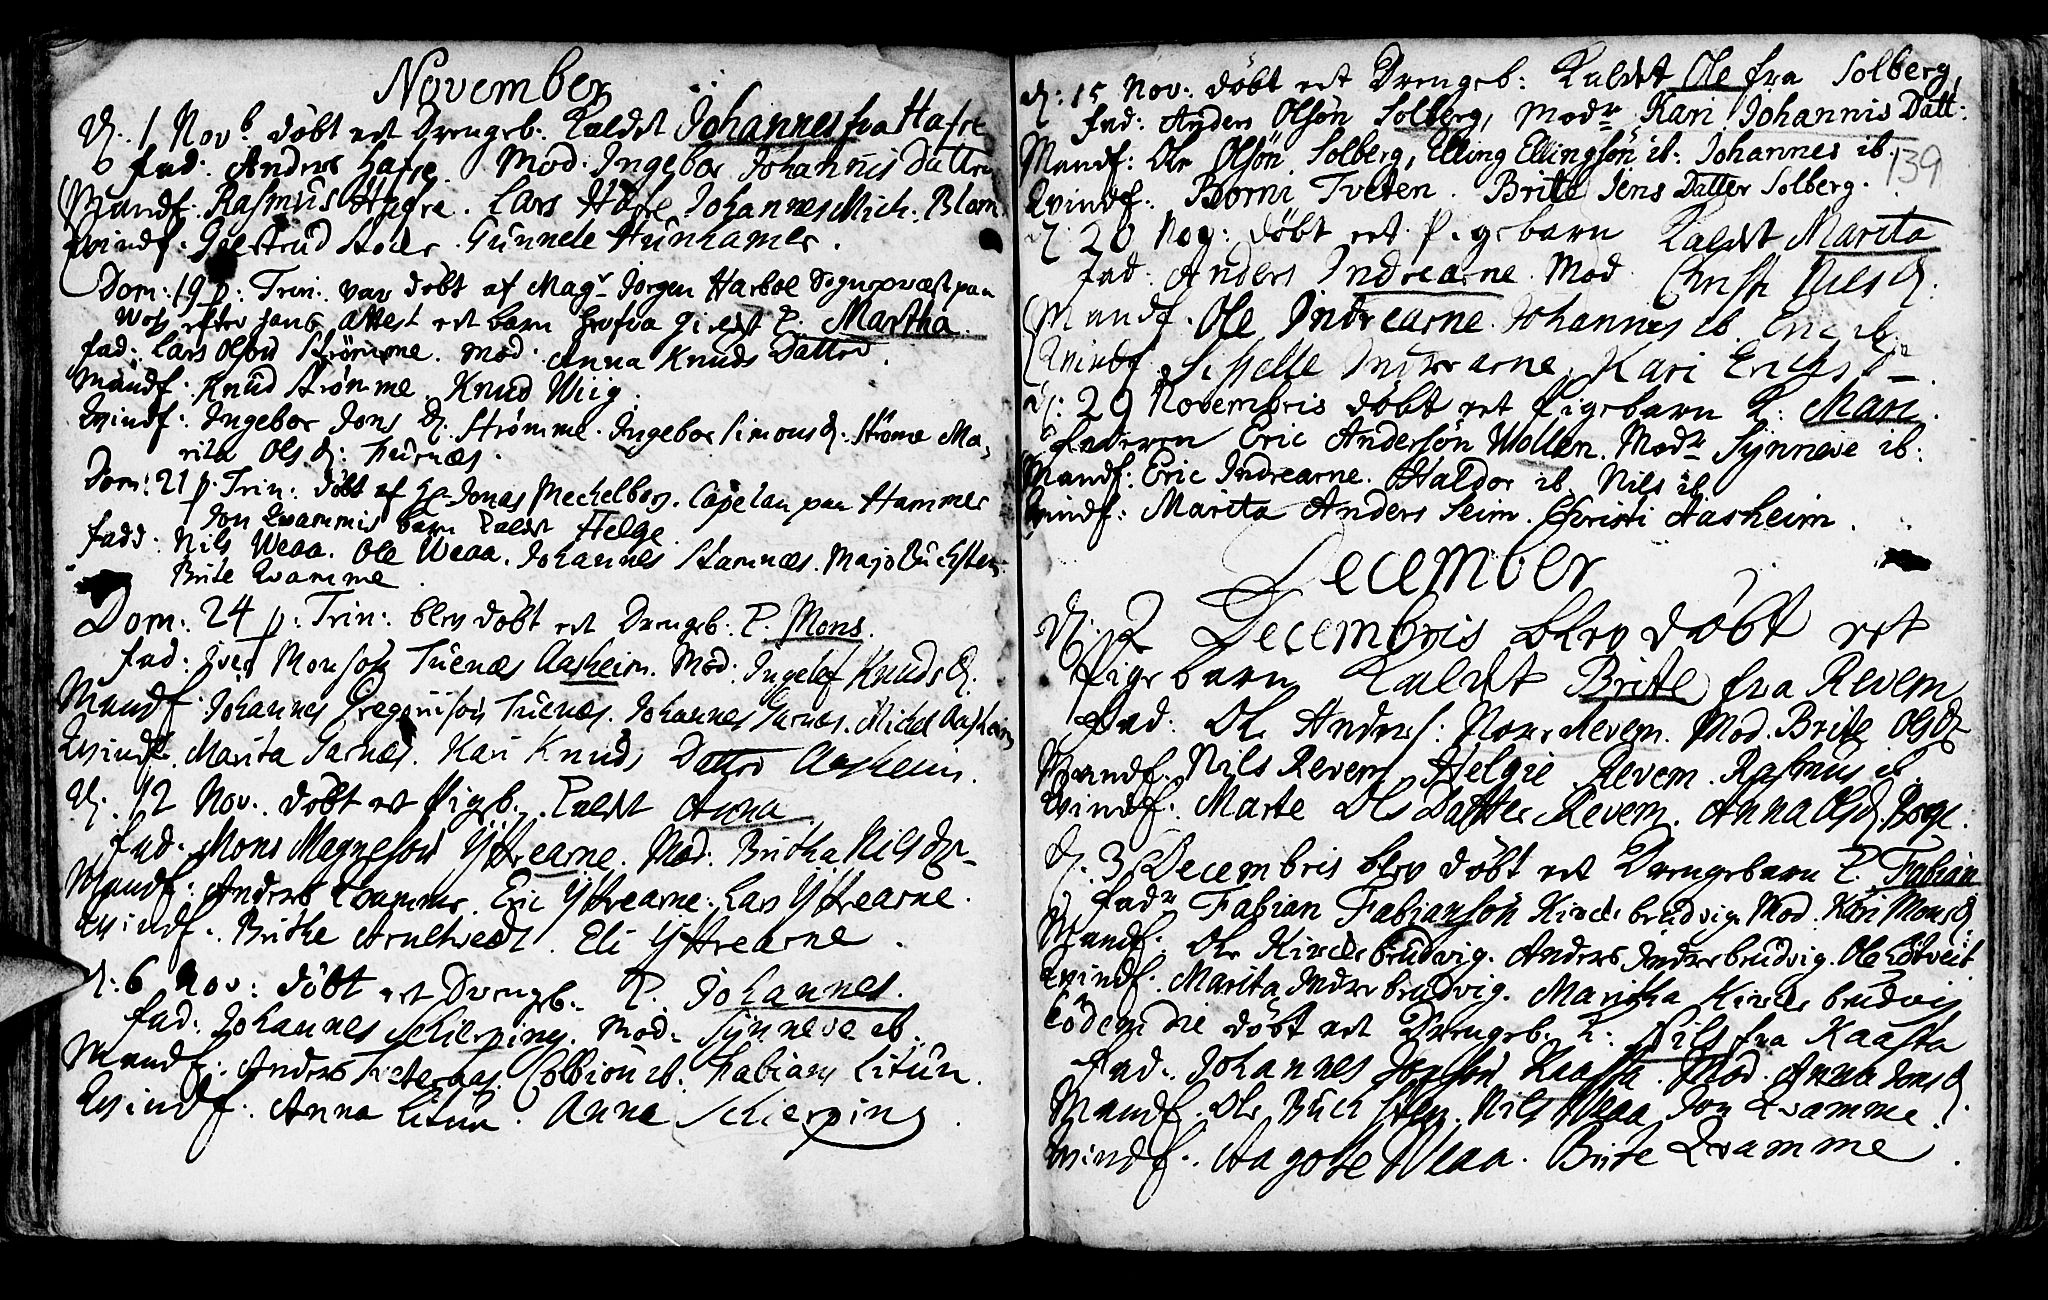 November
d. 1 Novb. döbt et Drengeb. Kaldt Johannes fra Hafre
fad. Anders Hafre. Mod. Ingebor Johannis Datter
Mandf. Rasmus Hafre. Lars Hafre Johannes Mich: Blom
Qvindf. Giertrud Holes. Gunnele Hunhamer.
Dom: 19 p: Trin: var döbt af Magr Jorgen Harboe Sognepræst paa
Wos efter hans attest et barn herfra gieldt K. Martha.
fad: Lars Olson Strømme. Mod. Anna Knuds Datter.
Mandf. Knud Strømme. Knud Wiig.
Qvindf. Ingebor Jons D. Strømme. Ingebor Simons d. Strøme Ma-
rita Ols d: Furnæs.
Dom: 21 p. Trin: döbt af Hr Jonas Mechelborg. Capelan paa Hammer
Jon Qvammis barn Kaldt Helge.
fadd: Nils Weaa. Ole Weaa. Johannes Stamnæs. Majo Buchsten.
Brite Qvamme
Dom: 24 p: Trin: blev döbt et Drengeb: K. Mons.
fad: Iver Monson Tuenæs Aasheim. Mod. Ingelef Knuds d.
Mandf. Johannes Gregoriison Tuenæs. Johannes Garnæs. Michel Aasheim
Qvindf. Marita Garnæs. Kari Knuds Datter Aasheim.
d. 12 Nov. döbt et Pigb. Kaldt Anna.
fad. Mons Magneson Yttrearne. Mod. Britha Nils dr
Mandf. Anders Qvamme. Eric Yttrearne. Lars Yttrearne.
Qvindf. Brithe Arnethvedt. Eli Yttrearne.
d. 6 Nov: döbt et Drengb. K. Johannes.
fad. Johannes Schierping. Mod. Synneve ib.
Mandf. Anders Tveternæs. Colbiorn ib. Fabians Litun.
Qvindf. Anna Litun. Anna Schierping.
d: 15 Nov: döbt et Drengeb: Kaldt Ole fra Solberg,
fad: Anders Olsön Solberg, Modr Kari Johannis Datt:
Mandf: Ole Olsön Solberg, Elling Ellingsön ib: Johannes ib.
139
Qvindf: Borni Tveten. Brite Jens Datter Solberg.
d: 20 Nov: döbt et Pigebarn Kaldt Marita
fad. Anders Indrearne. Mod. Christi Nils d.
Mandf. Ole Indrearne. Johannes ib. Eric ib
Qvindf. Sisselle Indrearne. Kari Erichs dr.
d: 29 Novembris döbt et Pigebarn K: Mari.
Faderen Eric Andersön Wollen. Modr Synneve ib:
Mandf: Eric Indrearne. Haldor ib. Nils ib.
Qvindf: Marita Anders Seim. Christi Aasheim.
December
d: 2 Decembris blev döbt et
Pigebarn Kaldt Brite fra Revem
fad: Ole Anders: Norrerevem. Mod. Brite Ols d
Mandf. Nils Revem Helgie Revem. Rasmus ib.
Qvindf. Marte Ols Datter Revem. Anna Ols d. Boge.
d. 3 Decembris blev döbt et Drengebarn K. Fabian
fadr Fabian Fabiansön Kirchebrudvig. Mod. Kari Mons d
Mandf. Ole Kirchebrudvig. Anders Indrebrudvig. Ole Lötveit
Qvindf. Marita Indrebrudvig. Maritha Kirchebrudvig
Eodem die döbt et Drengeb. K: Nils fra Kaasta
fad. Johannes Jonson Kaasta. Mod. Anna Jons d
Mandf. Ole Buchsten. Nils Weaa Jon Qvamme.
Qvindf. Aagotte Weaa. Brite Qvamme.